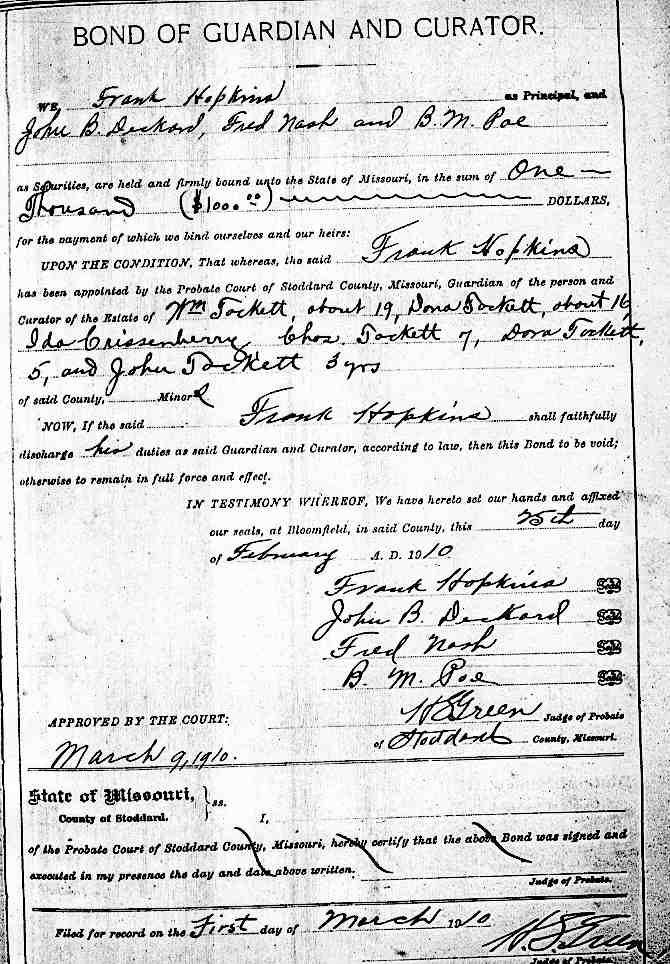 BOND OF GUARDIAN AND CURATOR.
WE, Frank Hopkins as Principal, and
John B. Deckard, Fred Nash and B. M. Poe
as Securities, are held and firmly bound unto the State of Missouri, in the sum of One
Thousand ($1000.00) DOLLARS,
for the payment of which we bind ourselves and our heirs:
UPON THE CONDITION, That whereas, the said Frank Hopkins
has been appointed by the Probate Court of Stoddard County, Missouri, Guardian of the person and
Curator of the Estate of Wm Tackett, about 19, Dona Tackett, about 16,
Ida Crissenberry, Chas. Tackett 7, Dora Tackett,
5, and John Tackett 3 yrs
of said County, Minors
NOW, If the said Frank Hopkins shall faithfully
discharge his duties as said Guardian and Curator, according to law, then this Bond to be void;
otherwise to remain in full force and effect.
IN TESTIMONY WHEREOF, We have hereto set our hands and affixed
our seals, at Bloomfield, in said County, this 25th day
of February A. D. 1910
Frank Hopkins Seal
John B. Deckard Seal
Fred Nash Seal
B. M. Poe Seal
APPROVED BY THE COURT: W S Green Judge of Probate
March 9, 1910. of Stoddard County, Missouri.
State of Missouri, } ss.
County of Stoddard. I,
of the Probate Court of Stoddard County, Missouri, hereby certify that the above Bond was signed and
executed in my presence the day and date above written.
Judge of Probate.
Filed for record on the First day of March 1910
W. S. Green
Judge of Probate.